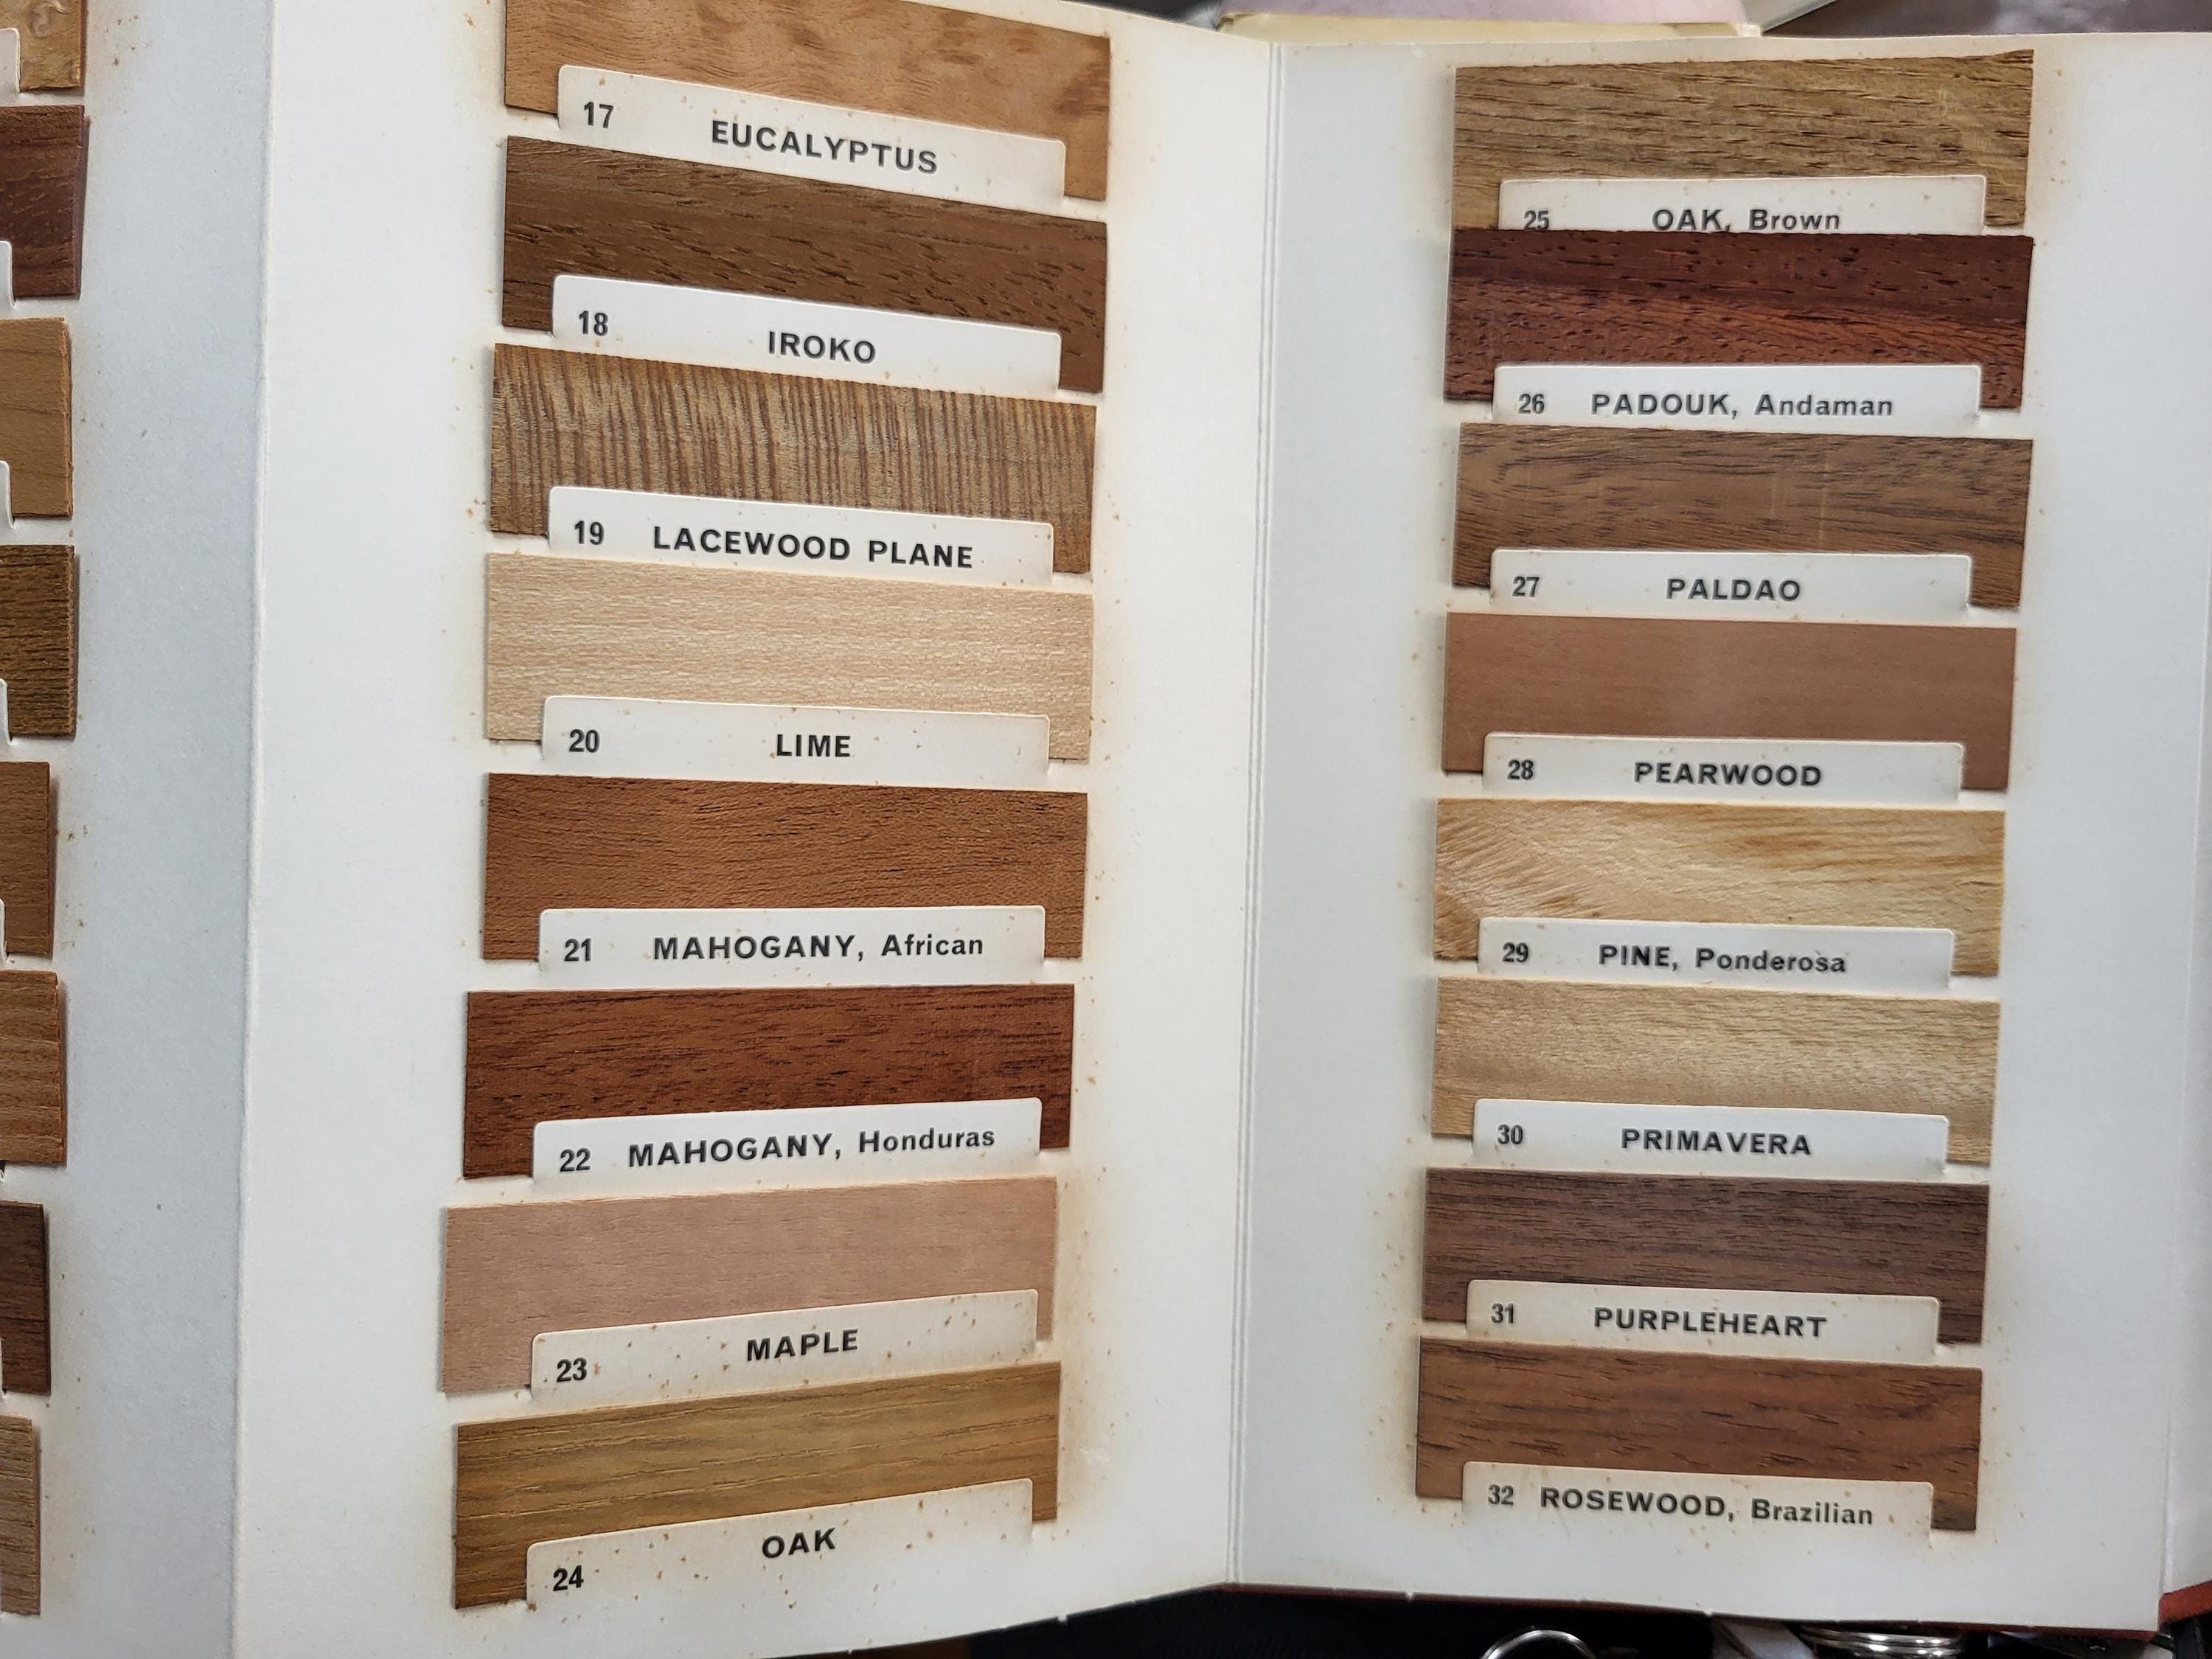 17 EUCALYPTUS
18 IROKO
19 LACEWOOD PLANE
20 LIME
21 MAHOGANY, African
22 MAHOGANY, Honduras
23 MAPLE
24 OAK
25 OAK, Brown
26 PADOUK, Andaman
27 PALDAO
28 PEARWOOD
29 PINE, Ponderosa
30 PRIMAVERA
31 PURPLEHEART
32 ROSEWOOD, Brazilian